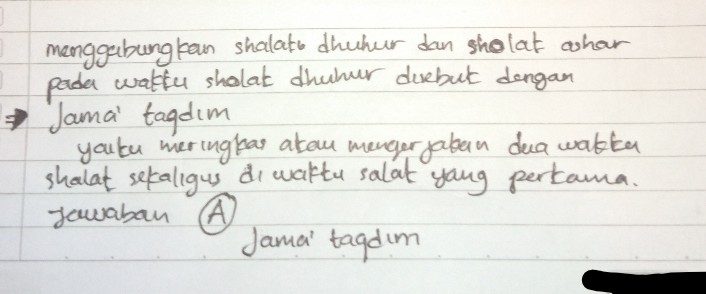 menggabungkan shalat dhuhur dan sholat ashar
pada waktu sholat dhuhur disebut dengan
⇒ Jama' taqdim
yaitu meringkas atau mengerjakan dua waktu
shalat sekaligus di waktu salat yang pertama.
Jawaban Ⓐ
Jama' taqdim